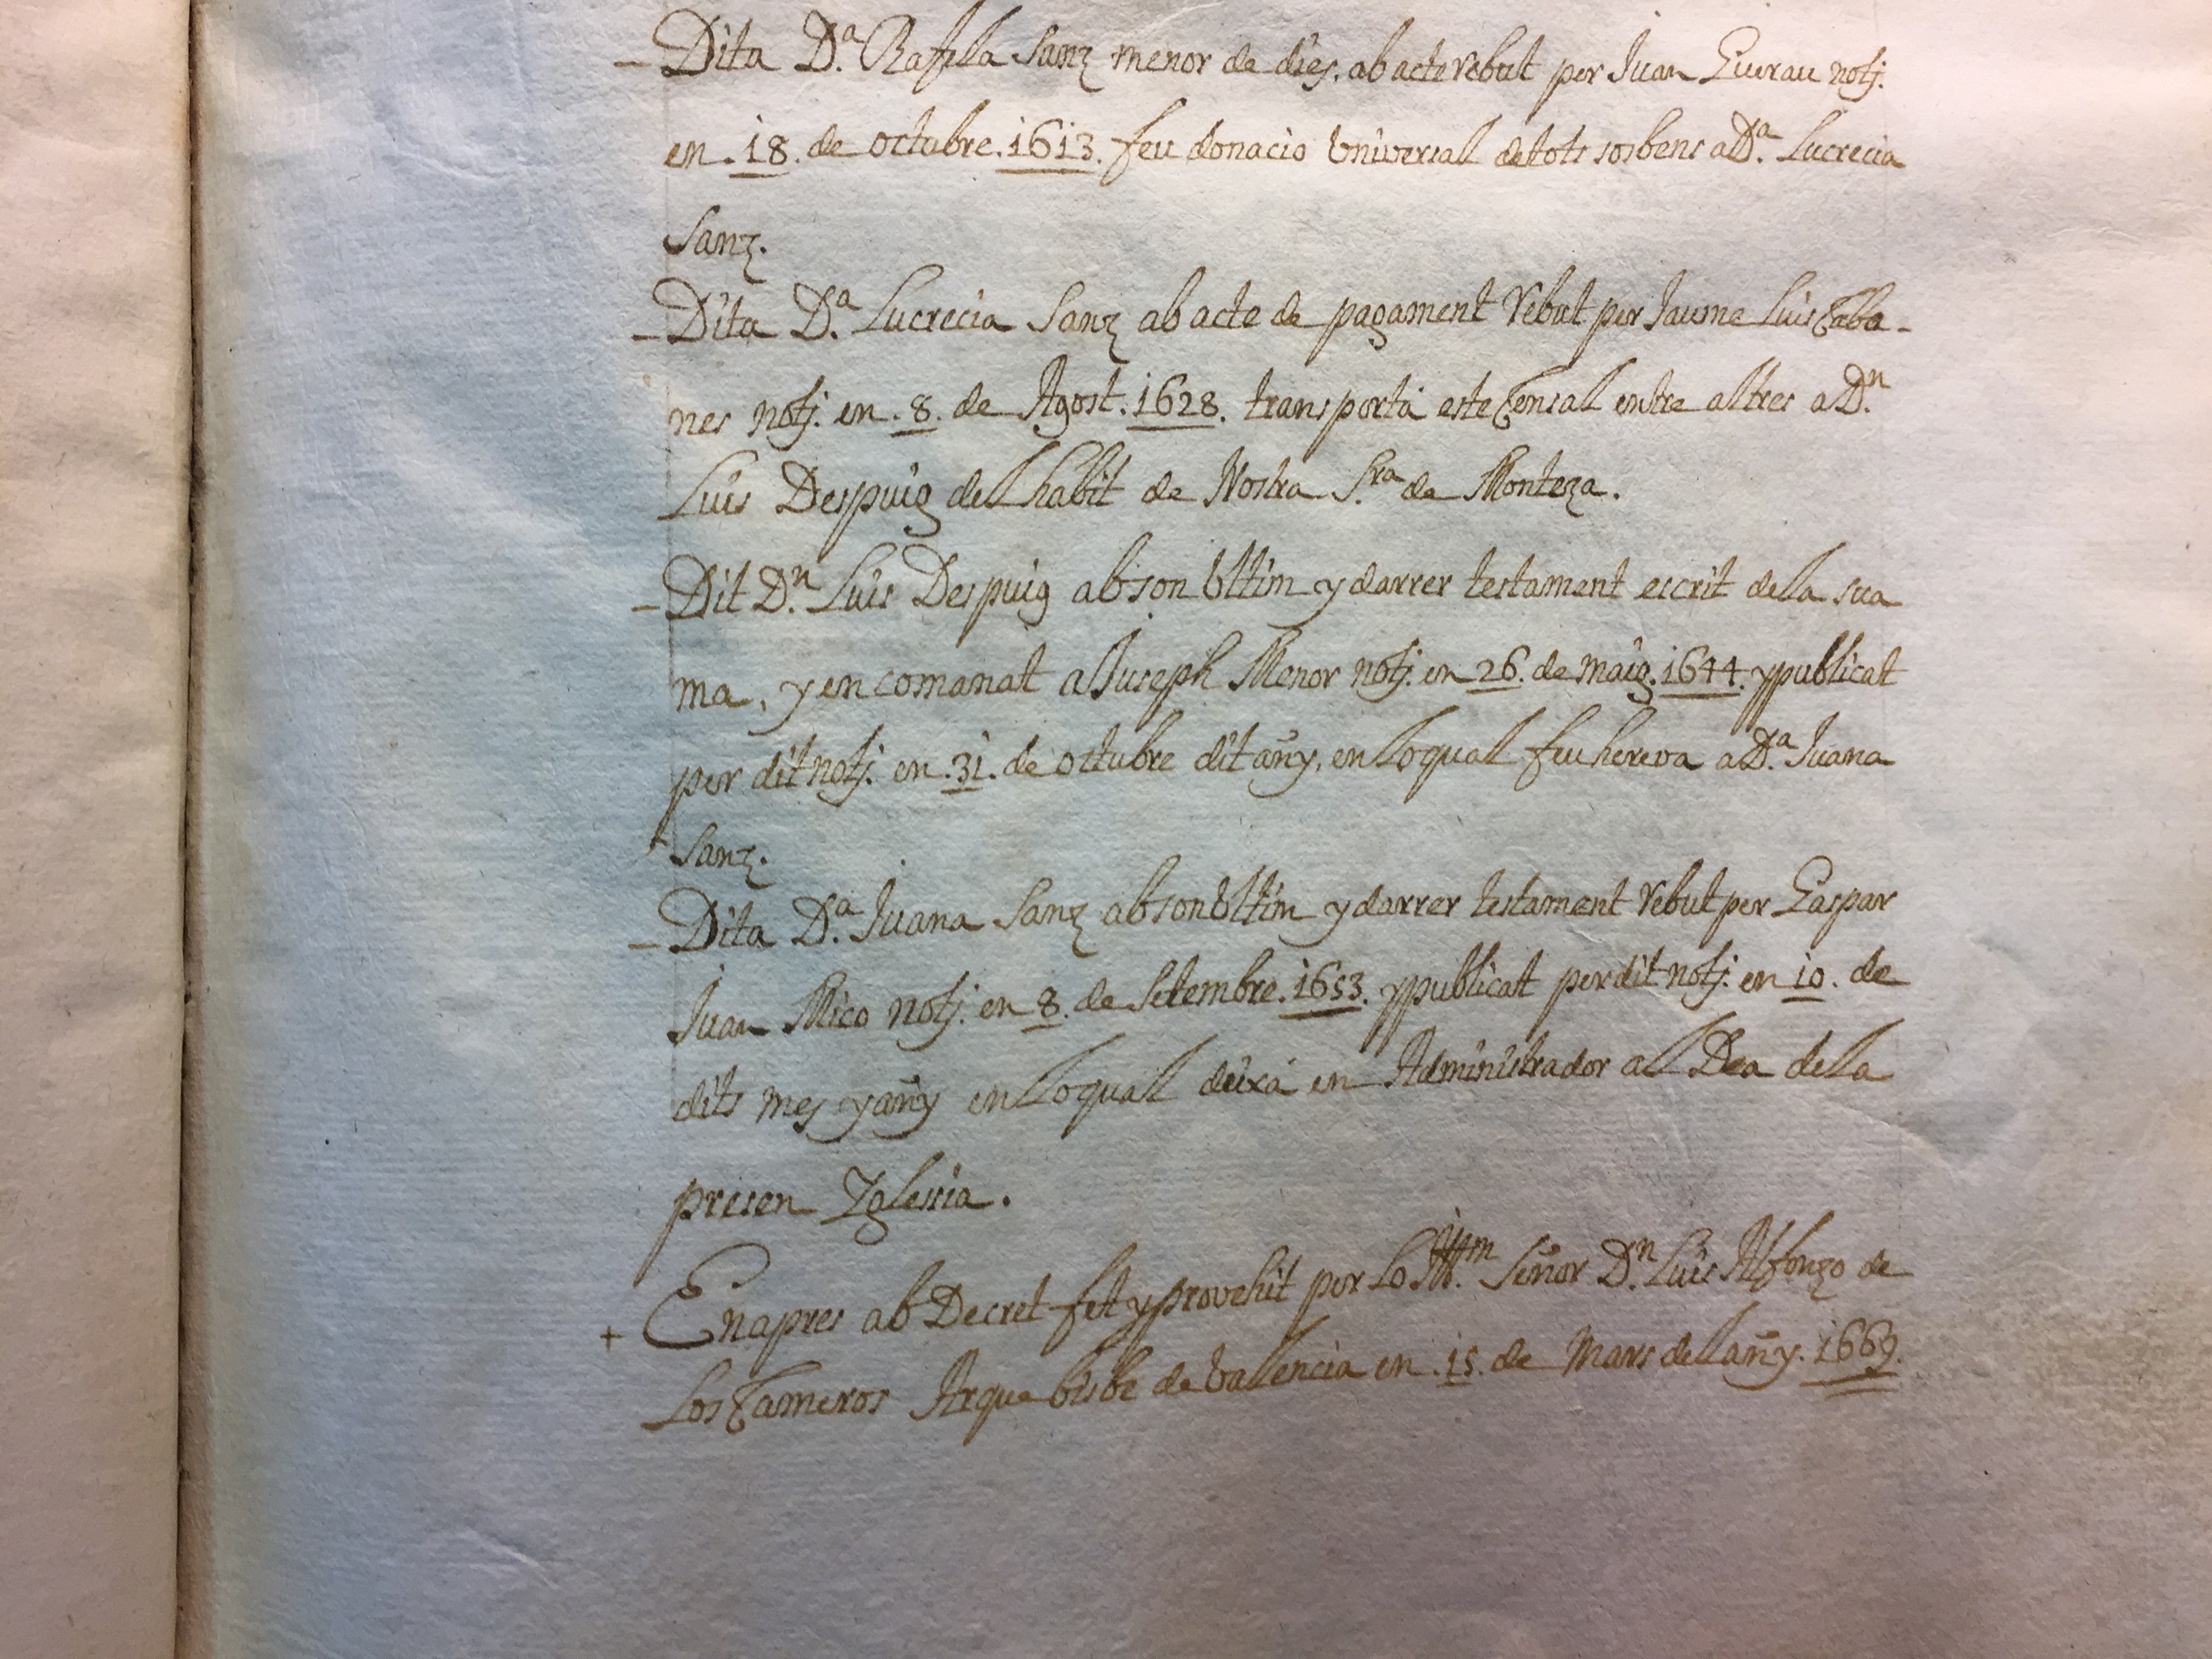 – Dita D.ª Rafela Sanz menor de dies. ab acte rebut per Juan Guerau notj.
en .18. de octubre .1613. feu donacio Universal de tots sos bens a D.ª Lucrecia
Sanz.
– Dita D.ª Lucrecia Sanz ab acte de pagament rebut per Jaume Luis Caba-
nes notj. en .8. de Agost .1628. transportà este Censal entre altres a D.n
Luis Despuig del habit de Nostra S.ra de Monteza.
– Dit D.n Luis Despuig ab son Ultim y darrer testament escrit de la sua
ma, y en comanat a Juseph Menor notj. en 26. de Maig .1644. y publicat
per dit notj. en .31. de octubre dit añy, en lo qual feu hereva a D.ª Juana
Sanz.
– Dita D.ª Juana Sanz ab son Ultim y darrer testament rebut per Gaspar
Juan Mico notj. en 8. de Setembre .1653. y publicat per dit notj. en 10. de
dits mes y añy en lo qual deixà en Administrador al Dea de la
presen Yglesia.
+ En apres ab Decret fet y provehit per lo Señor D.n Luis Alfonzo de
Los Cameros Arquebisbe de Valencia en .15. de Mars del añy .1669.